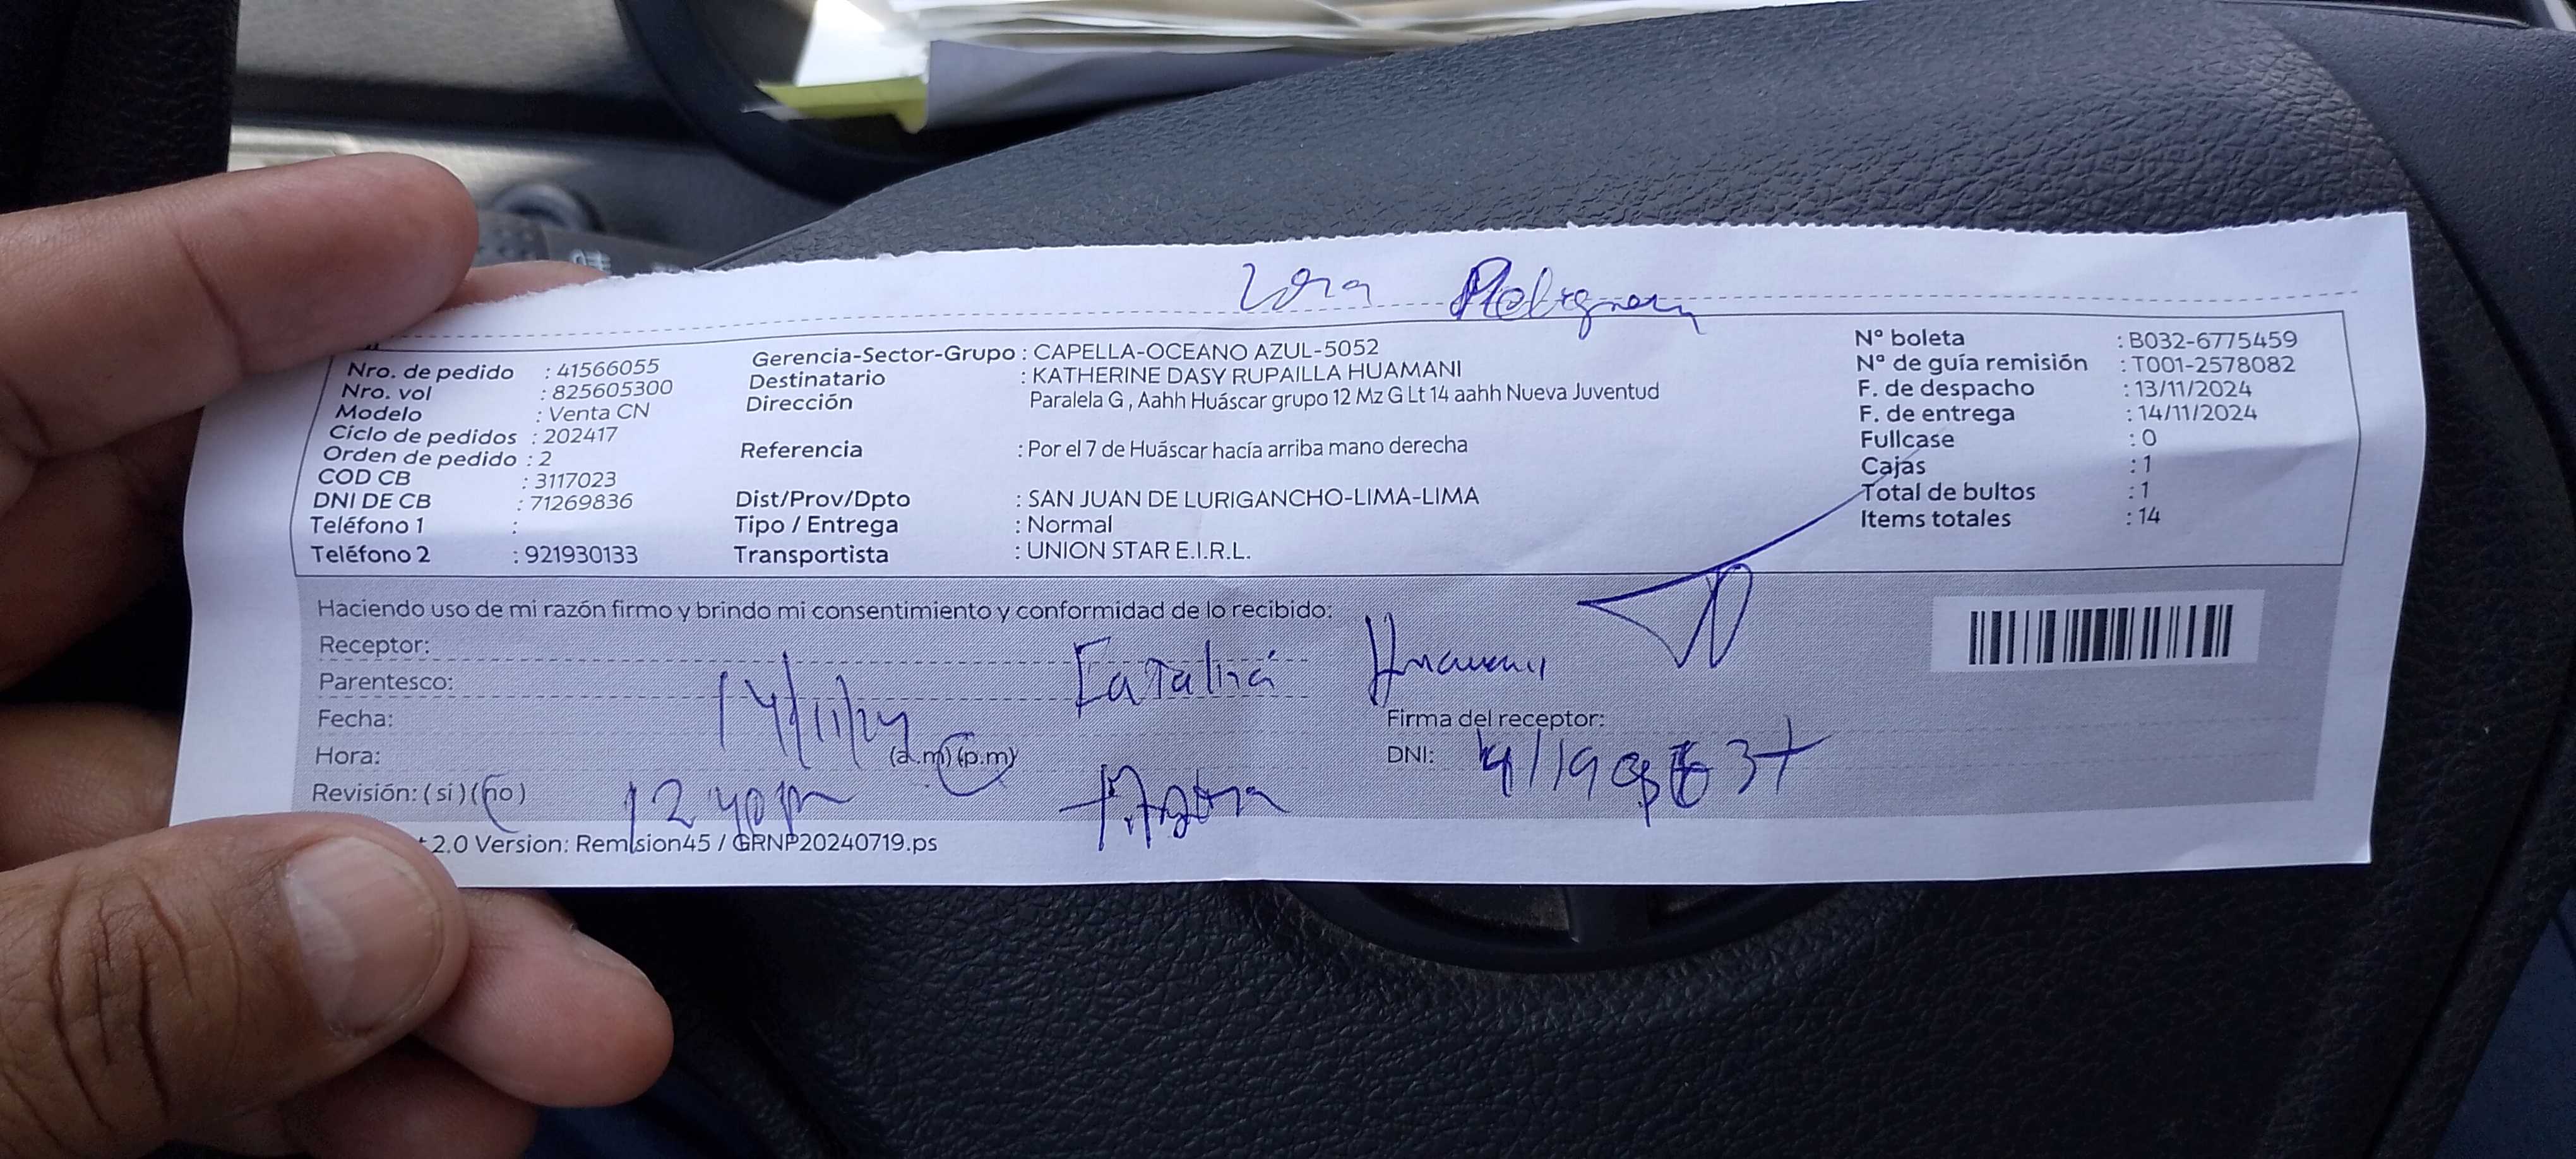 Nro. de pedido : 41566055
Nro. vol : 825605300
Modelo : Venta CN
Ciclo de pedidos : 202417
Orden de pedido : 2
COD CB : 3117023
DNI DE CB : 71269836
Teléfono 1 :
Teléfono 2 : 921930133
Gerencia-Sector-Grupo : CAPELLA-OCEANO AZUL-5052
Destinatario : KATHERINE DASY RUPAILLA HUAMANI
Dirección Paralela G , Aahh Huáscar grupo 12 Mz G Lt 14 aahh Nueva Juventud
Referencia : Por el 7 de Huáscar hacía arriba mano derecha
Dist/Prov/Dpto : SAN JUAN DE LURIGANCHO-LIMA-LIMA
Tipo / Entrega : Normal
Transportista : UNION STAR E.I.R.L.
Nº boleta : B032-6775459
Nº de guía remisión : T001-2578082
F. de despacho : 13/11/2024
F. de entrega : 14/11/2024
Fullcase : 0
Cajas : 1
Total de bultos : 1
Items totales : 14
Haciendo uso de mi razón firmo y brindo mi consentimiento y conformidad de lo recibido:
Receptor:
Parentesco:
Fecha: 14/11/24
Hora: 12 40 pm (a.m) (p.m)
Revisión: ( si ) ( no )
Firma del receptor:
DNI:
2.0 Version: Remision45 / GRNP20240719.ps